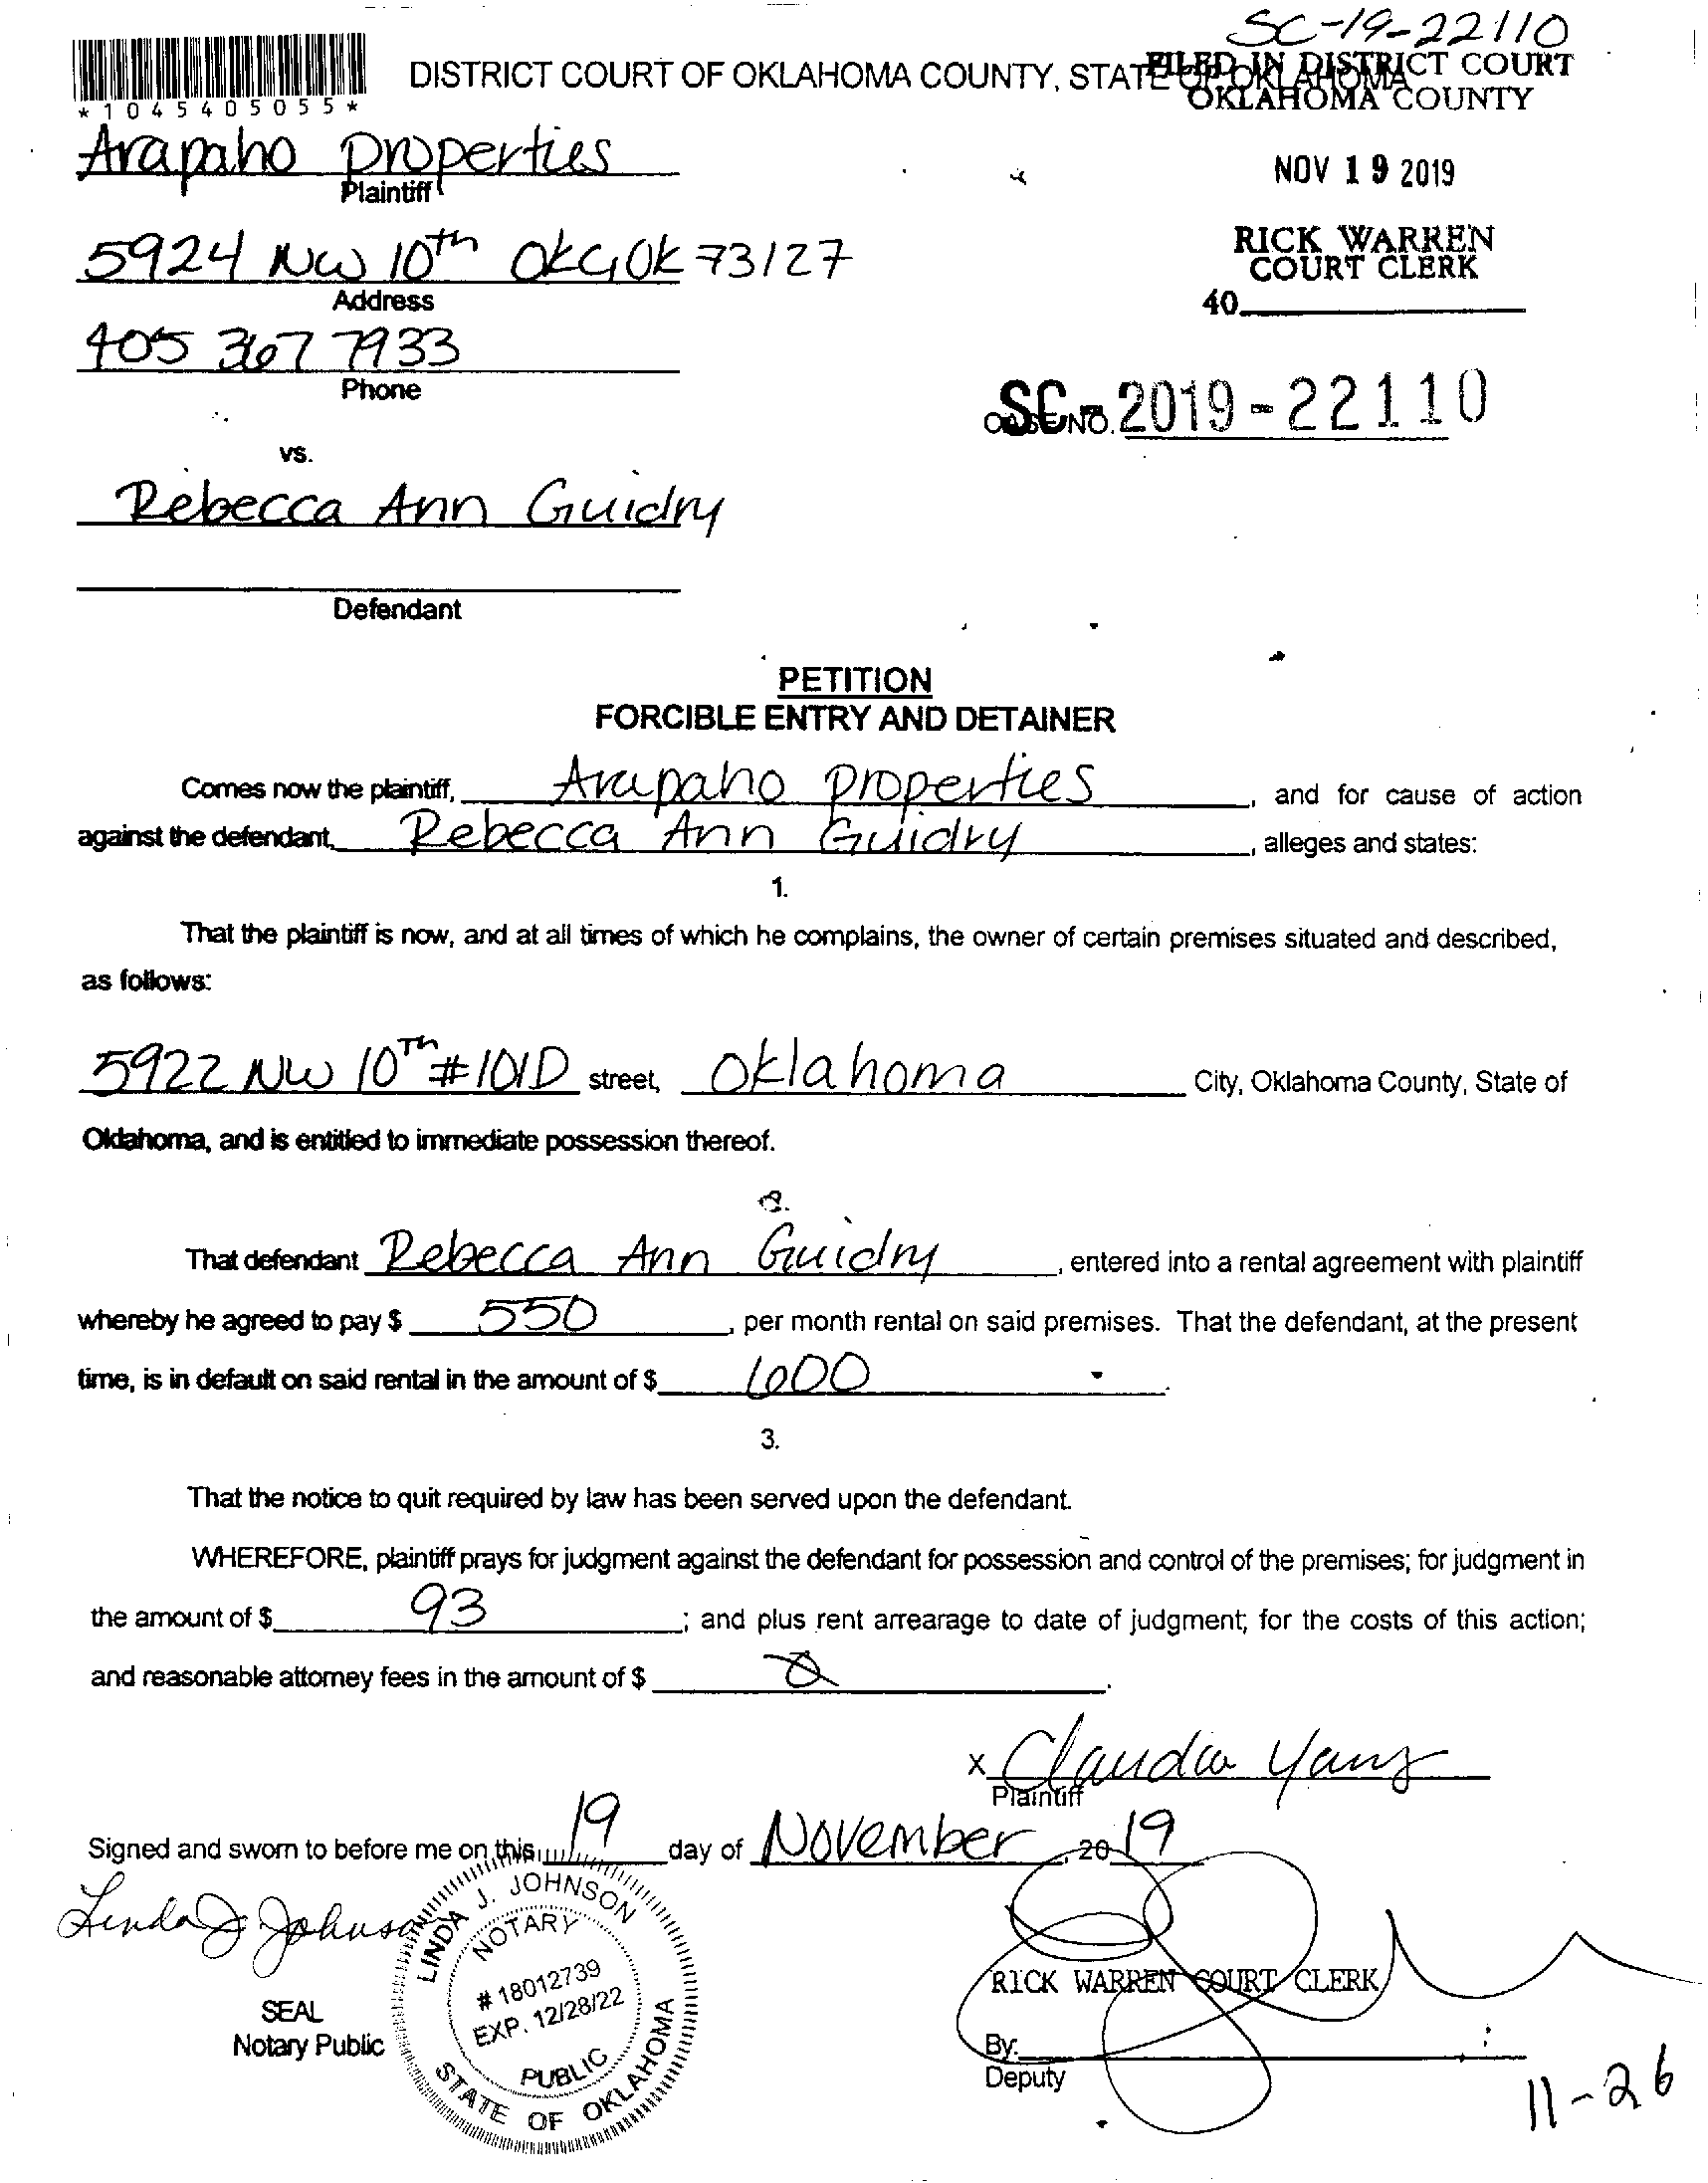 SC-19-22110
DISTRICT COURT OF OKLAHOMA COUNTY, STATE OF OKLAHOMA
FILED IN DISTRICT COURT
OKLAHOMA COUNTY
*1045405055*
Arapaho Properties
Plaintiff
NOV 19 2019
5924 NW 10th OKC, OK 73127
Address
RICK WARREN
COURT CLERK
40
405 367 7933
Phone
CASE NO. SC-2019-22110
vs.
Rebecca Ann Guidry
Defendant
PETITION
FORCIBLE ENTRY AND DETAINER
Comes now the plaintiff, Arapaho Properties, and for cause of action
against the defendant, Rebecca Ann Guidry, alleges and states:
1.
That the plaintiff is now, and at all times of which he complains, the owner of certain premises situated and described,
as follows:
5922 NW 10Th #101D street, Oklahoma City, Oklahoma County, State of
Oklahoma, and is entitled to immediate possession thereof.
2.
That defendant Rebecca Ann Guidry, entered into a rental agreement with plaintiff
whereby he agreed to pay $ 550, per month rental on said premises. That the defendant, at the present
time, is in default on said rental in the amount of $ 600.
3.
That the notice to quit required by law has been served upon the defendant.
WHEREFORE, plaintiff prays for judgment against the defendant for possession and control of the premises; for judgment in
the amount of $ 93; and plus rent arrearage to date of judgment; for the costs of this action;
and reasonable attorney fees in the amount of $
x Claudia Yang
Plaintiff
Signed and sworn to before me on this 19 day of November, 2019
Linda J Johnson
LINDA J. JOHNSON
NOTARY
# 18012739
EXP. 12/28/22
PUBLIC
STATE OF OKLAHOMA
SEAL
Notary Public
RICK WARREN COURT CLERK
By:
Deputy
11-26